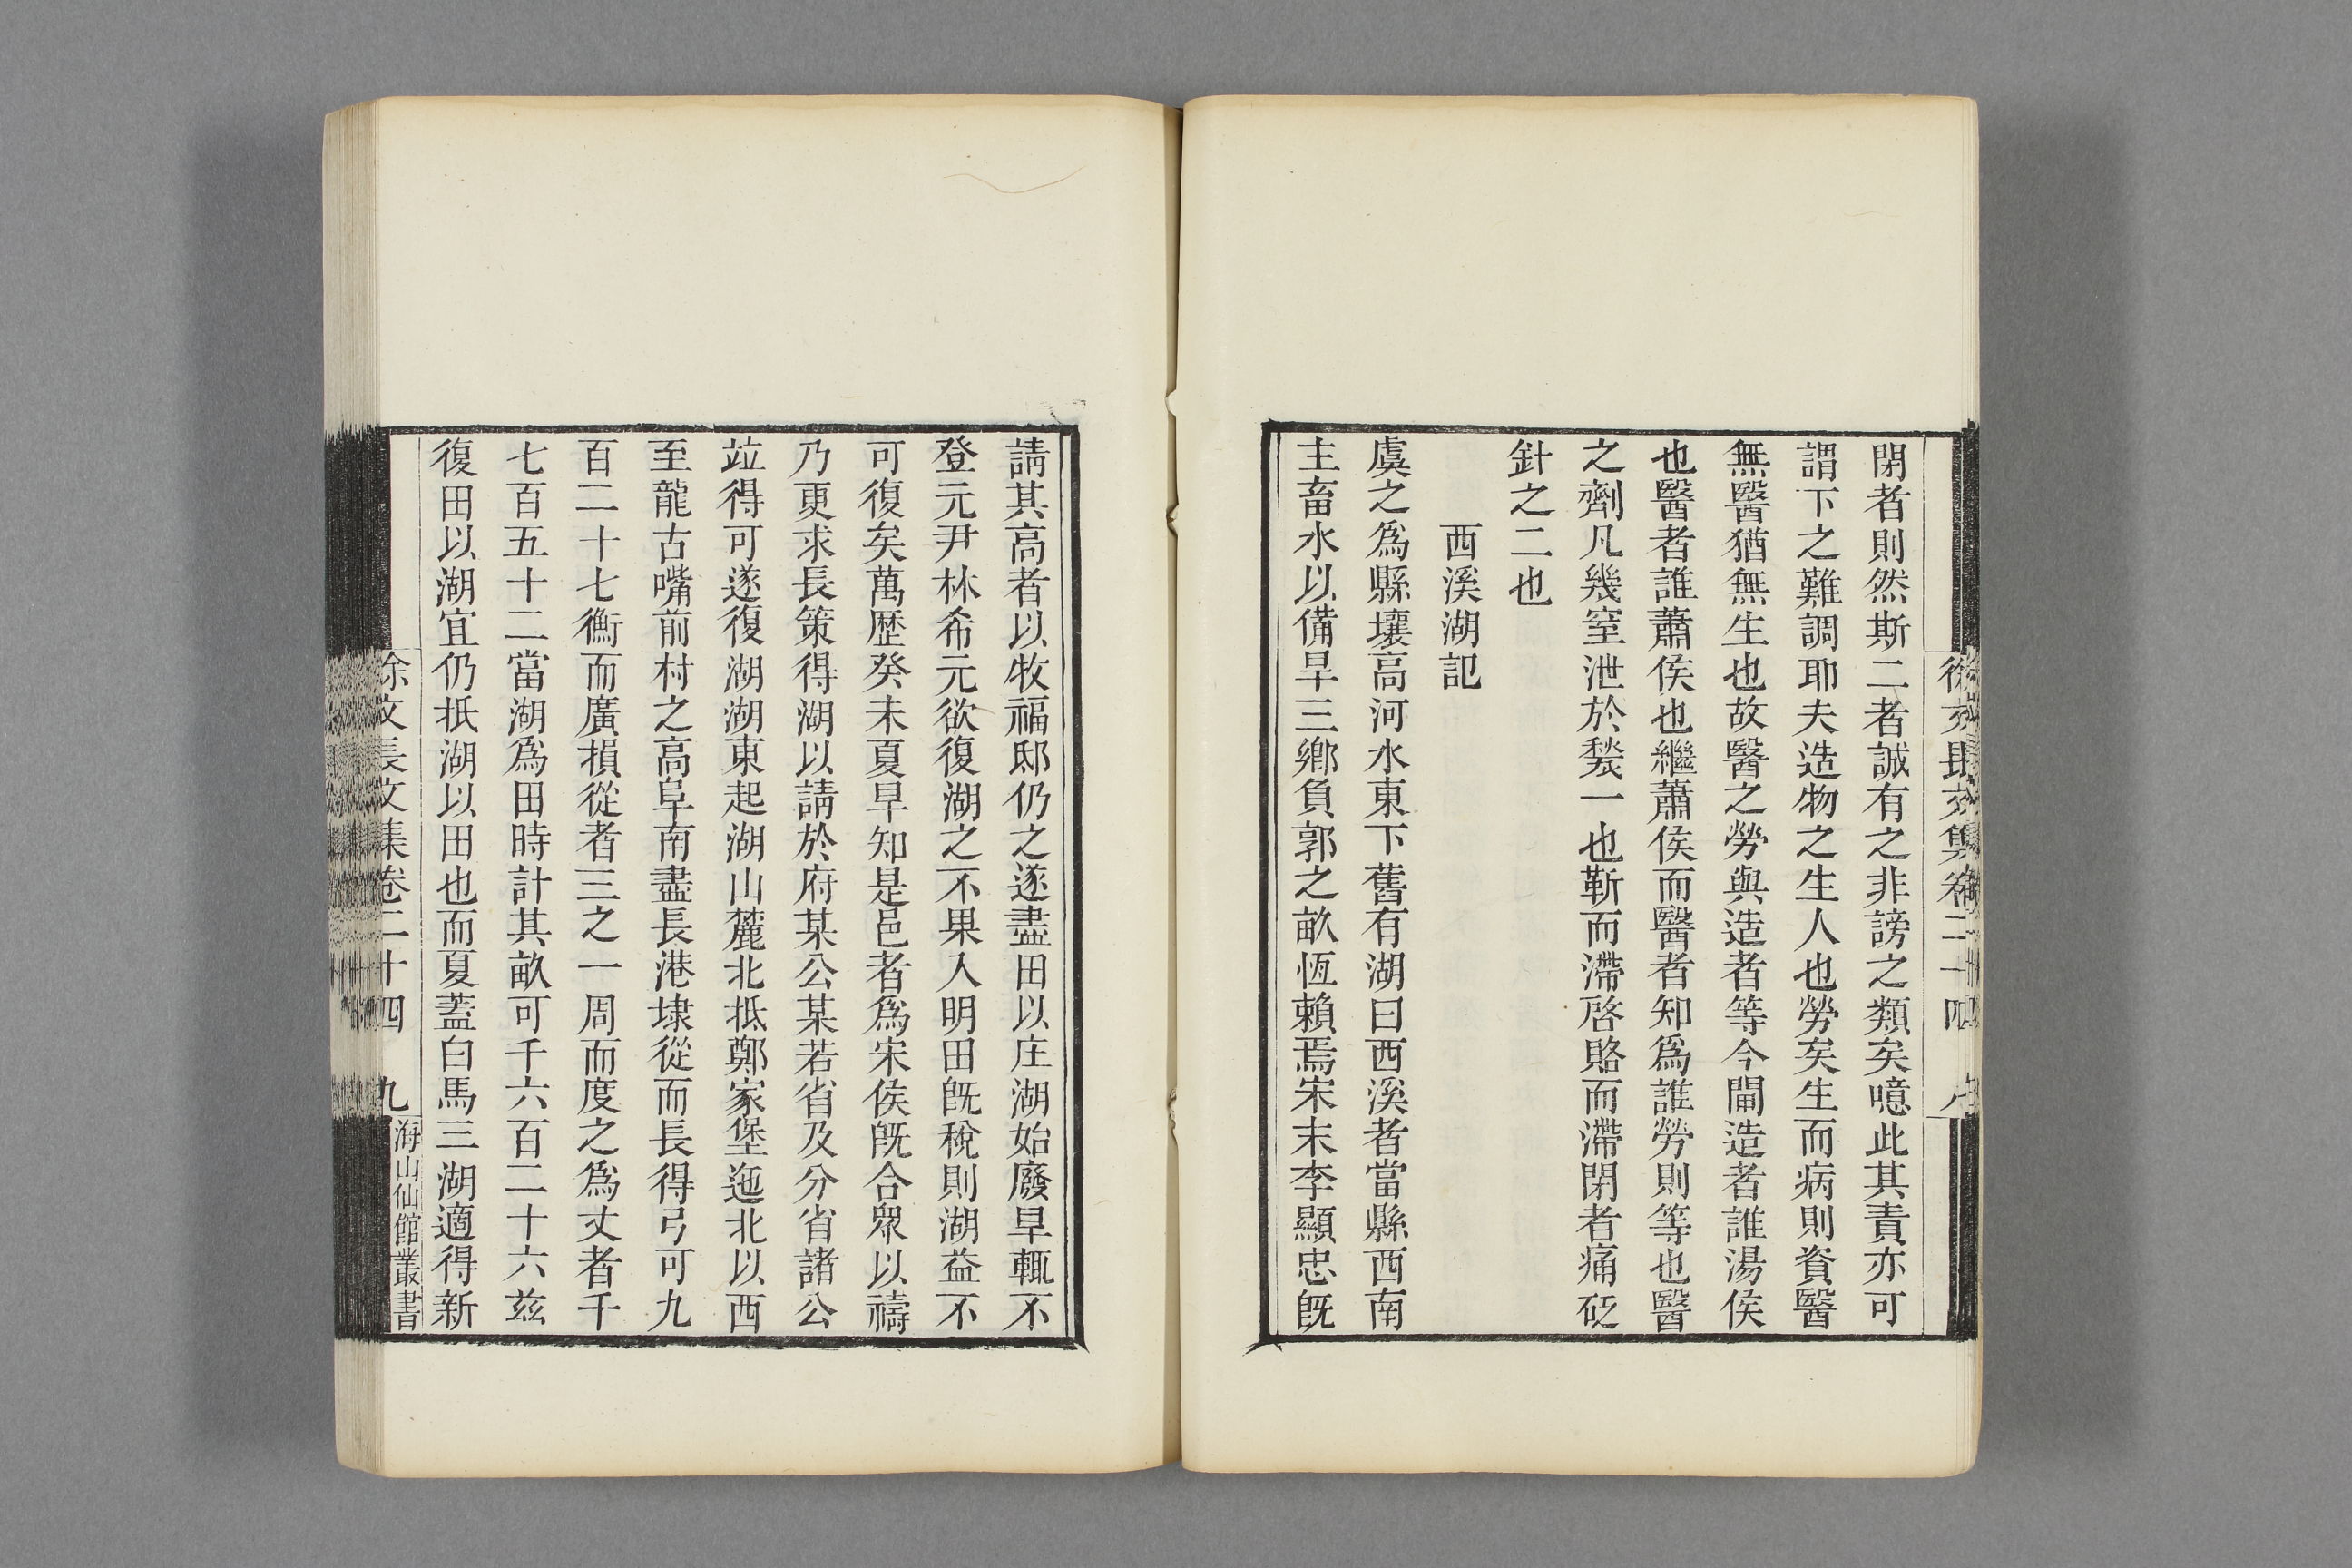 徐文長文集卷二十四 八
閉者則然斯二者誠有之非謗之類矣噫此其責亦可
謂下之難調耶夫造物之生人也勞矣生而病則資醫
無醫猶無生也故醫之勞與造者等今閘造者誰湯侯
也醫者誰蕭侯也繼蕭侯而醫者知爲誰勞則等也醫
之劑凡幾窒泄於發一也靳而滯啓賂而滯閉者痛砭
針之二也
西溪湖記
虞之爲縣壤高河水東下舊有湖曰西溪者當縣西南
主畜水以備旱三鄉負郭之畝恆賴焉宋末李顯忠旣
請其高者以牧福邸仍之遂盡田以庄湖始廢旱輒不
登元尹林希元欲復湖之不果入明田旣稅則湖益不
可復矣萬歷癸未夏旱知是邑者爲宋侯旣合眾以禱
乃更求長策得湖以請於府某公某若省及分省諸公
竝得可遂復湖湖東起湖山麓北抵鄭家堡迤北以西
至龍古嘴前村之高阜南盡長港埭從而長得弓可九
百二十七衡而廣損從者三之一周而度之爲丈者千
七百五十二當湖爲田時計其畝可千六百二十六茲
復田以湖宜仍抵湖以田也而夏蓋白馬三湖適得新
徐文長文集卷二十四 九 海山仙館叢書